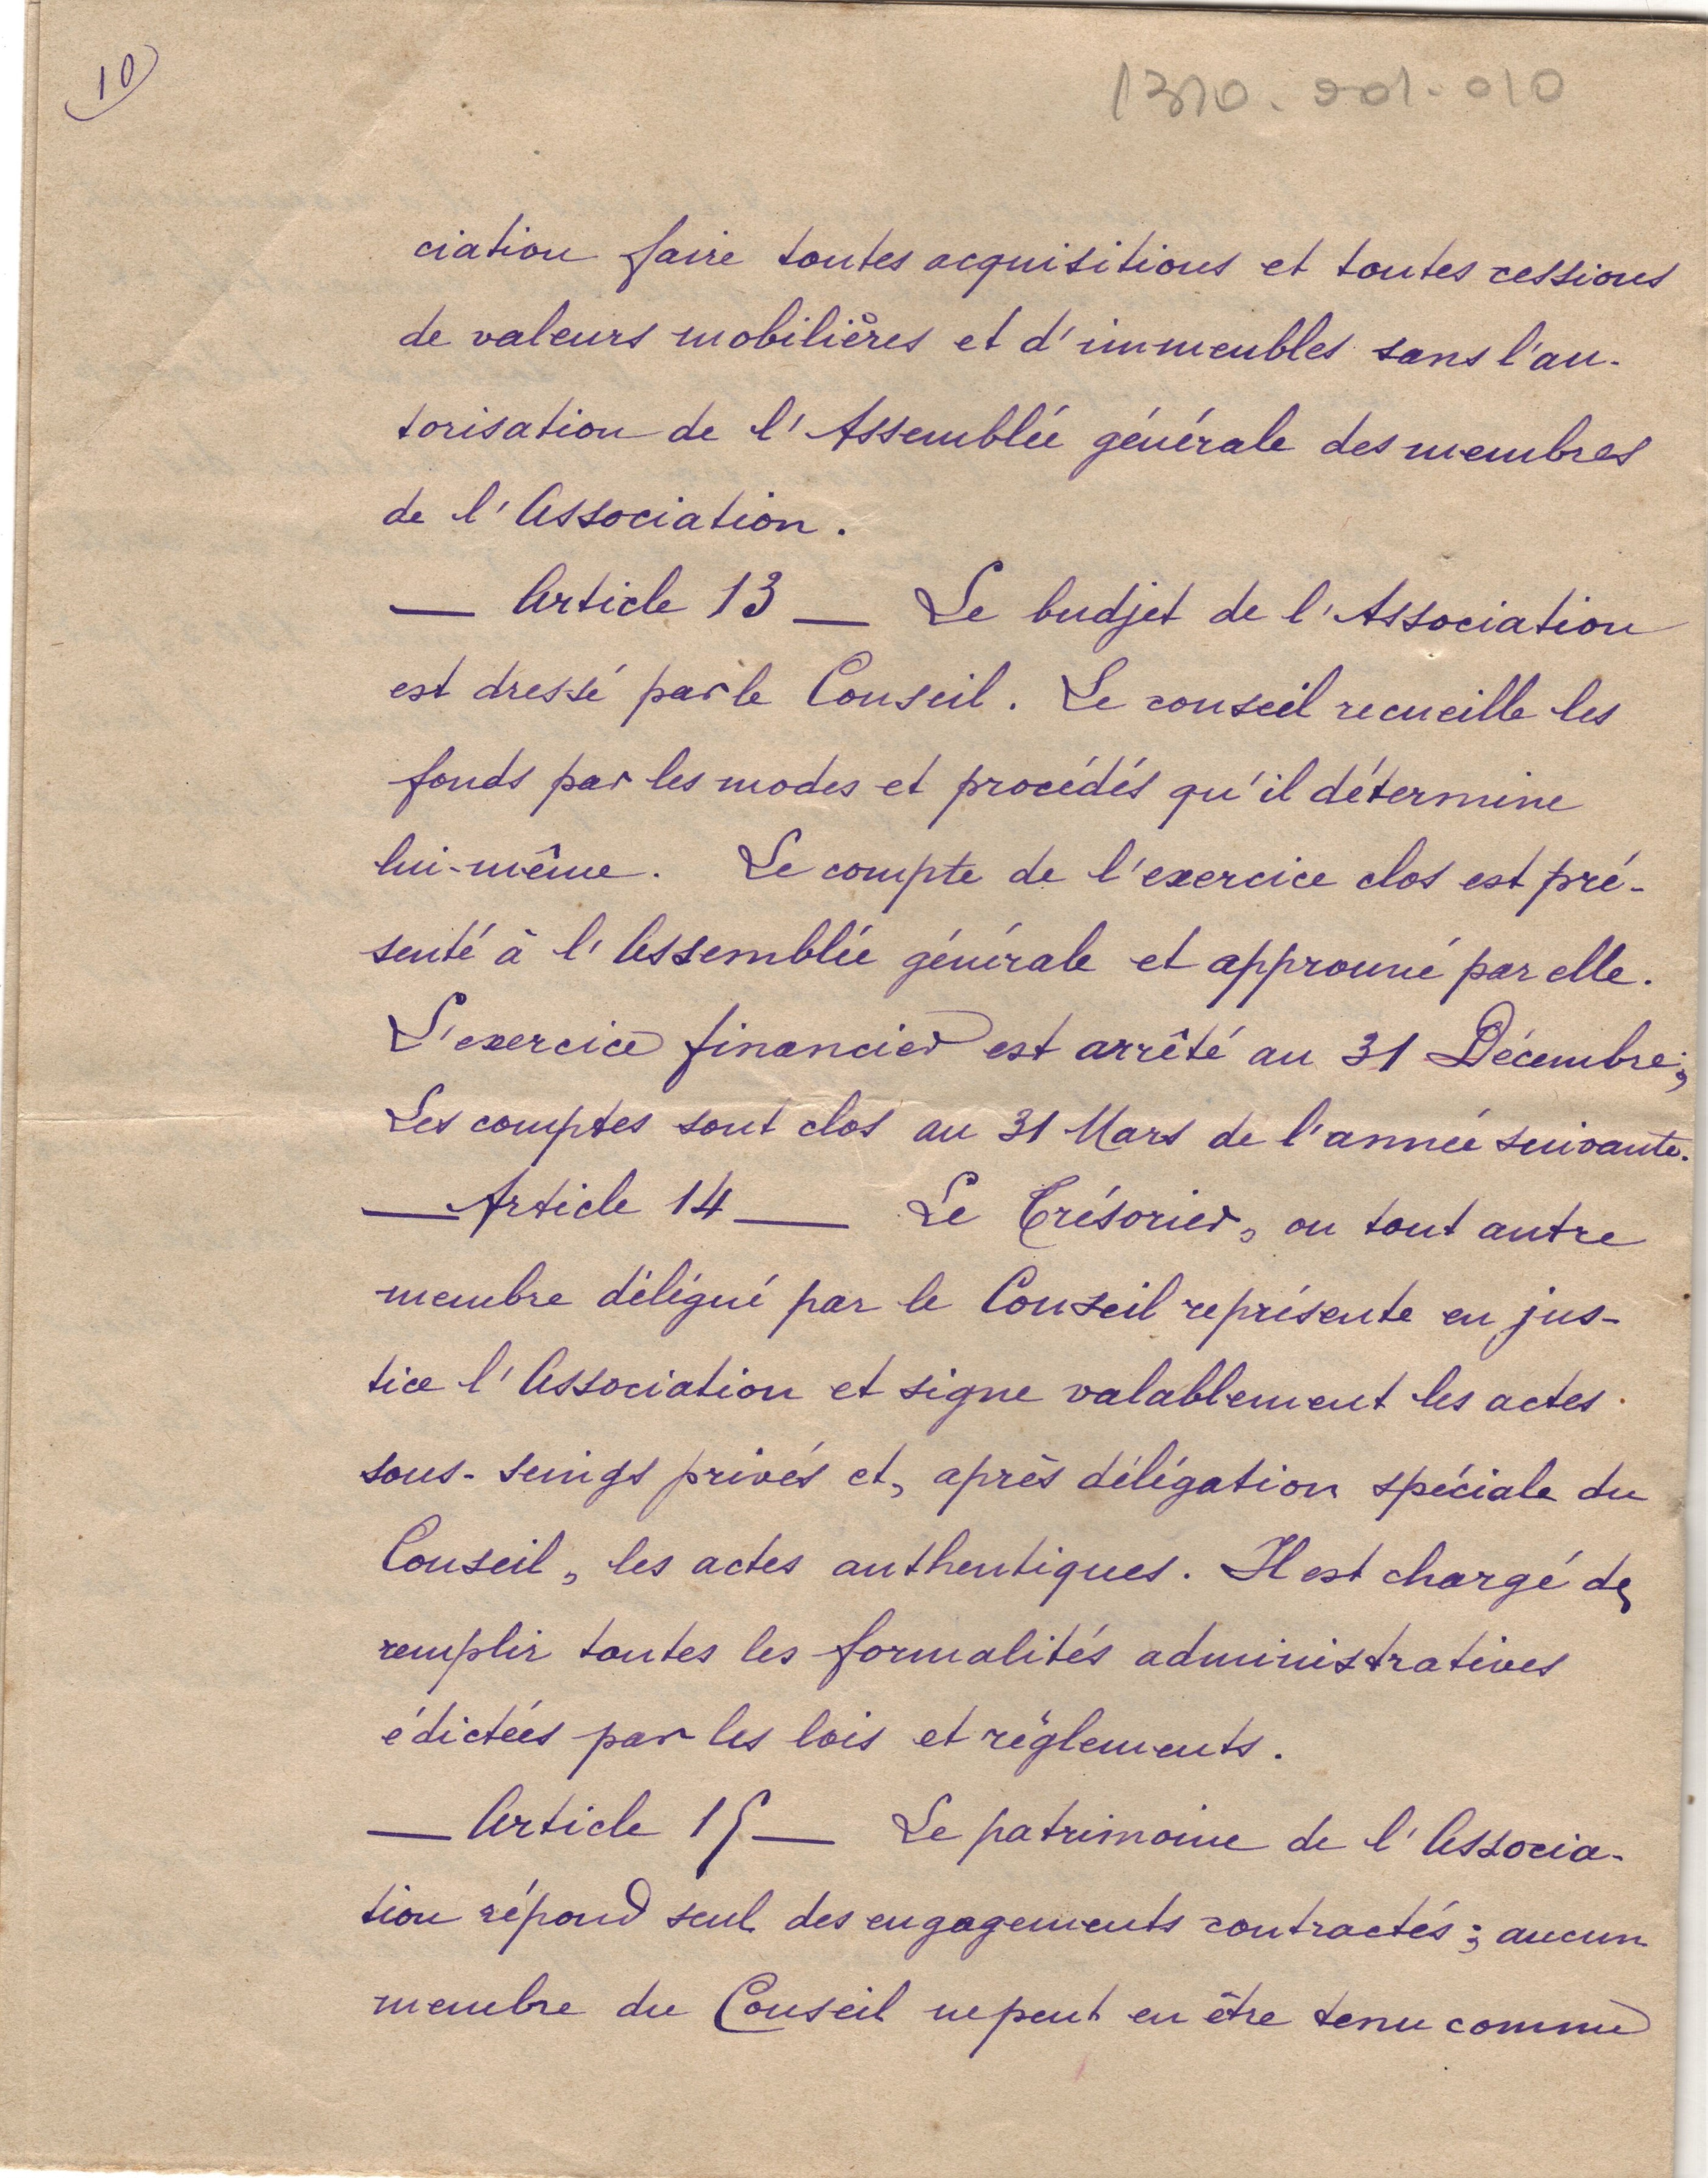 10
1310.001.010
ciation faire toutes acquisitions et toutes cessions
de valeurs mobilières et d'immeubles sans l'au-
torisation de l'Assemblée générale des membres
de l'Association.
— Article 13 — Le budjet de l'Association
est dressé par le Conseil. Le conseil recueille les
fonds par les modes et procédés qu'il détermine
lui-même. Le compte de l'exercice clos est pré-
senté à l'Assemblée générale et approuvé par elle.
L'exercice financier est arrêté au 31 Décembre;
Les comptes sont clos au 31 Mars de l'année suivante.
— Article 14 — Le Trésorier, ou tout autre
membre délégué par le Conseil représente en jus-
tice l'Association et signe valablement les actes
sous-seings privés et, après délégation spéciale du
Conseil, les actes authentiques. Il est chargé de
remplir toutes les formalités administratives
édictées par les lois et règlements.
— Article 15 — Le patrimoine de l'Associa-
tion répond seul des engagements contractés; aucun
membre du Conseil ne peut en être tenu comme